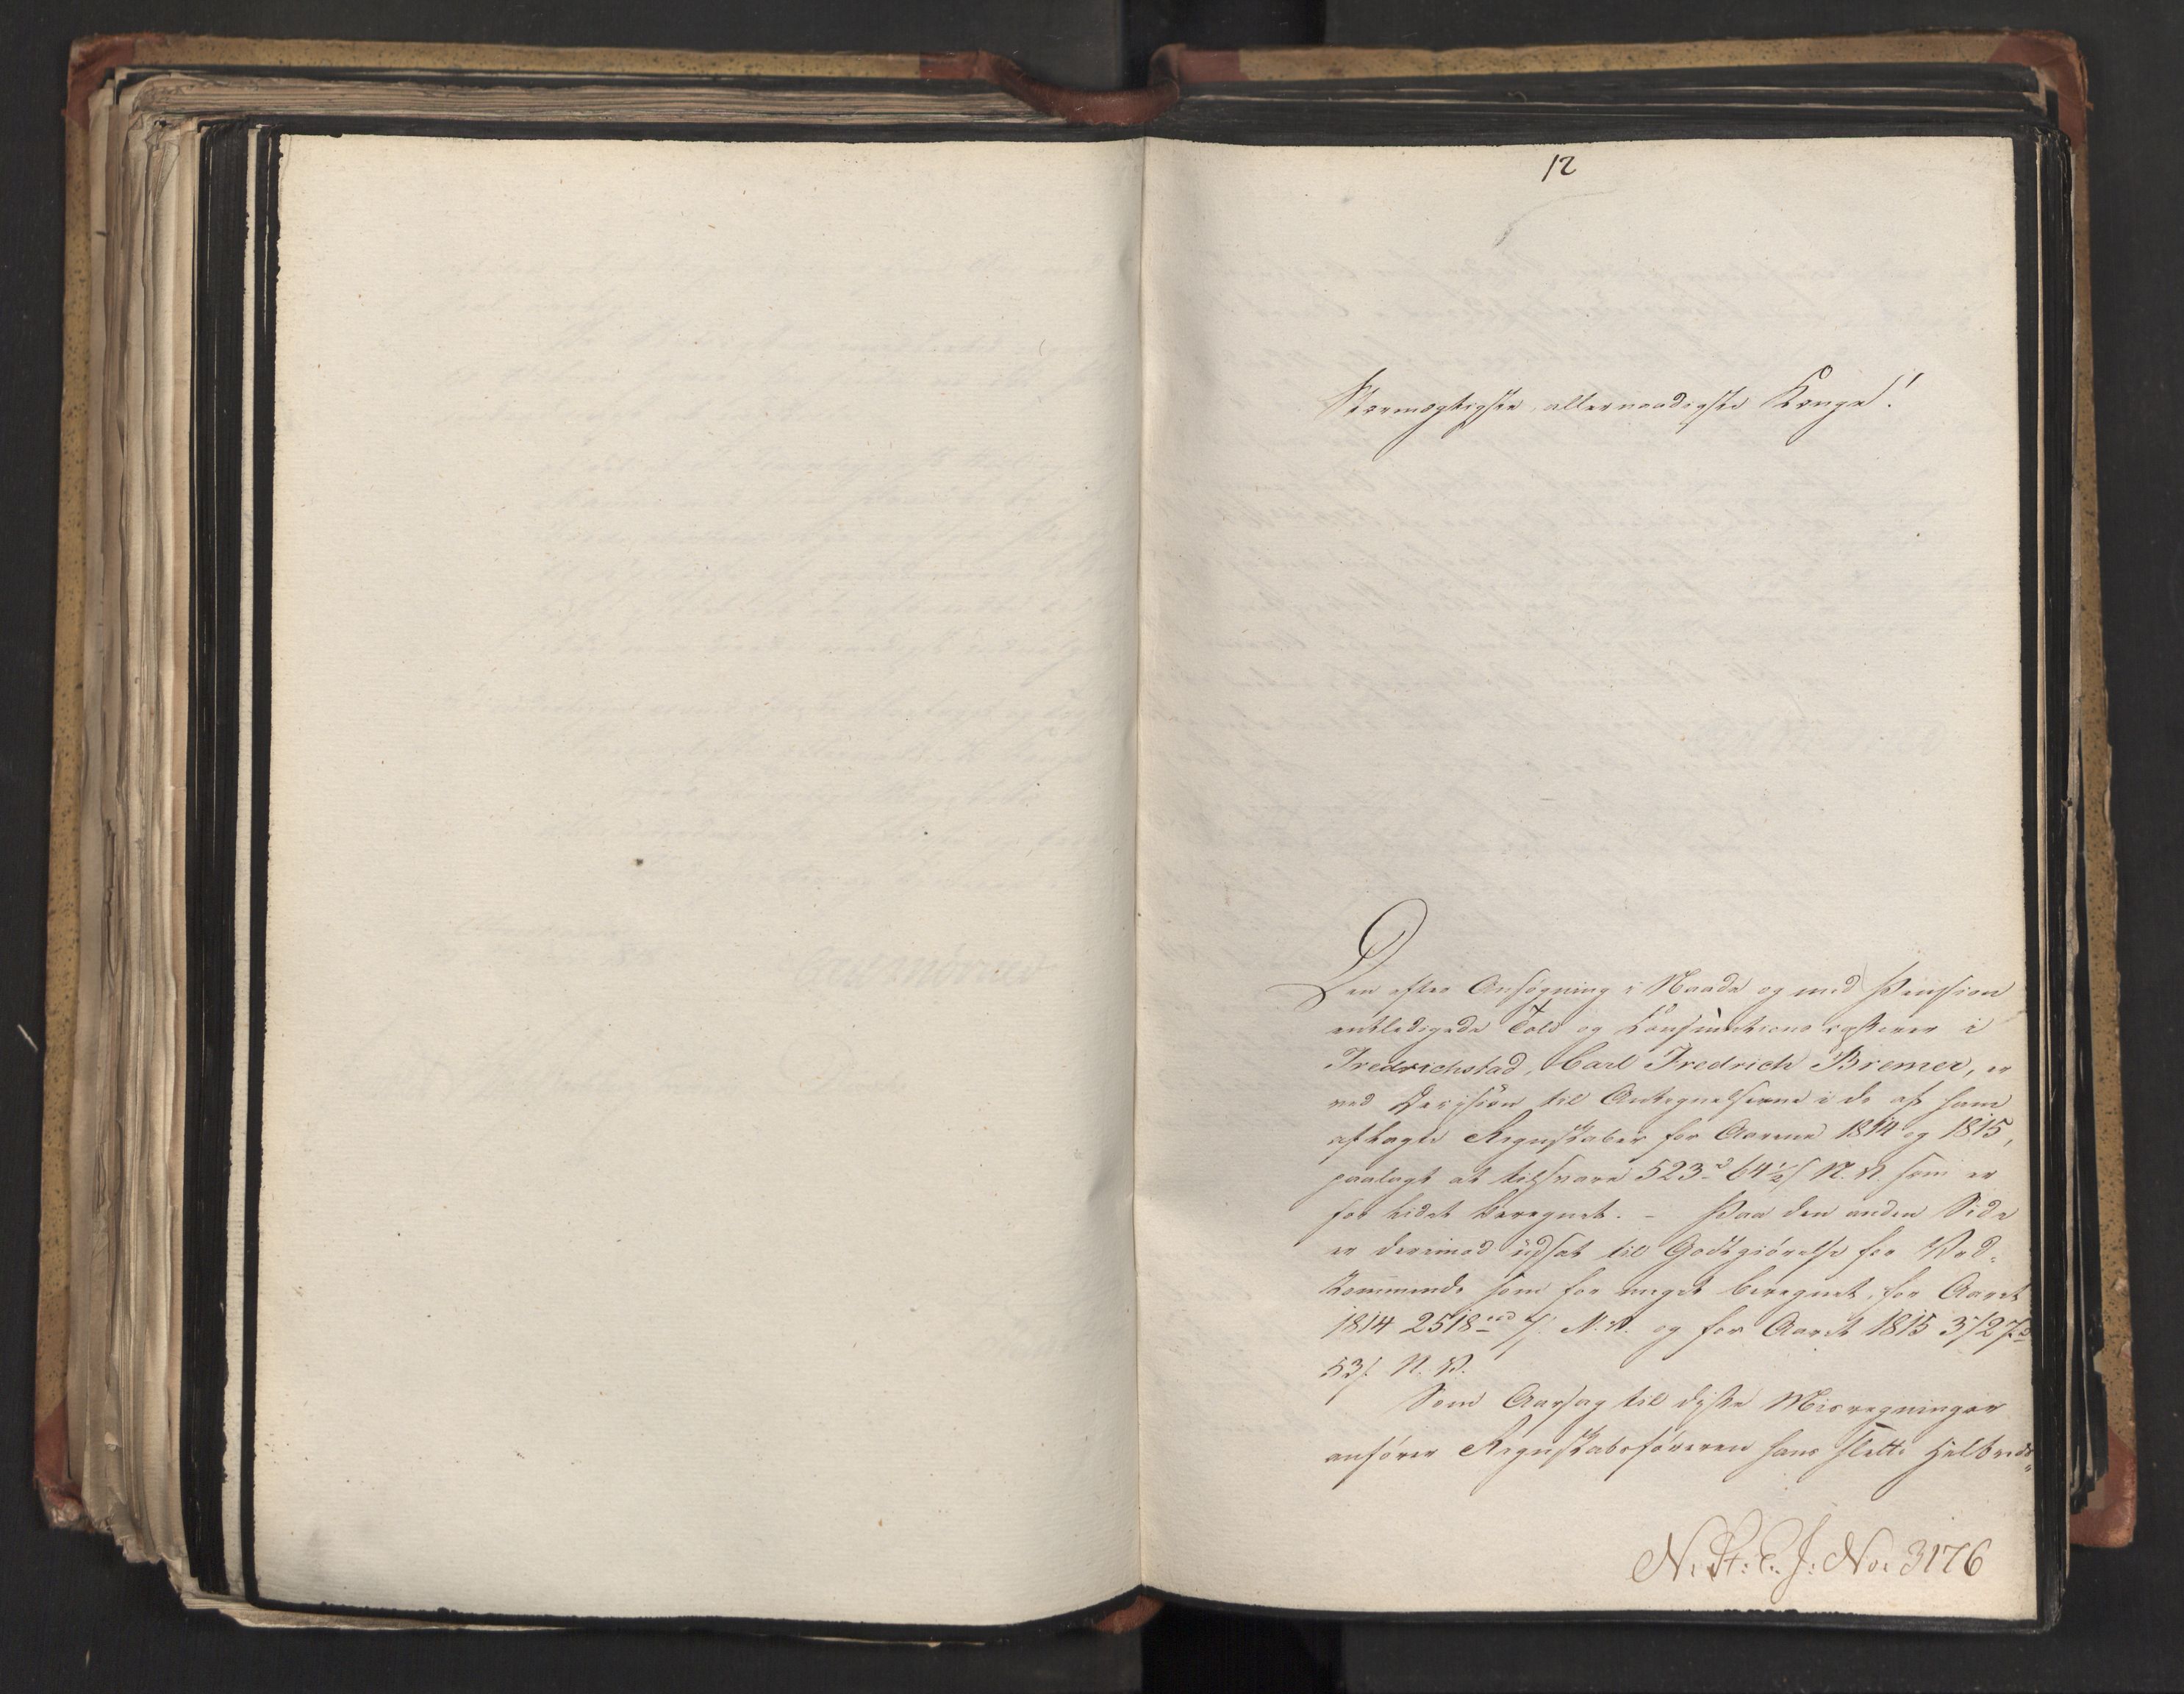 12
Stormægtigste, allernaadigste Konge!
Den efter Ansøgning i Naade og med Pension
entledigede Told og Consumtions casserer i
Fredrichstad, Carl Fredrich Bremer, er
ved Decision til Antegnelserne i de af ham
aflagte Regnskaber for Aarene 1814 og 1815,
paalagt at tilsvare 523 64½ s N. V. som er
for lidet beregnet. - Paa den anden Side
er derimod udsat til Godtgiørelse for Ved-
kommende som for meget beregnet, for Aaret
1814 2518 N. V. og for Aaret 1815
53 s N. V.
Som Aarsag til disse Misregninger
anfører Regnskabsføreren hans slette Helbreds-
N. St: S. J: No: 3176